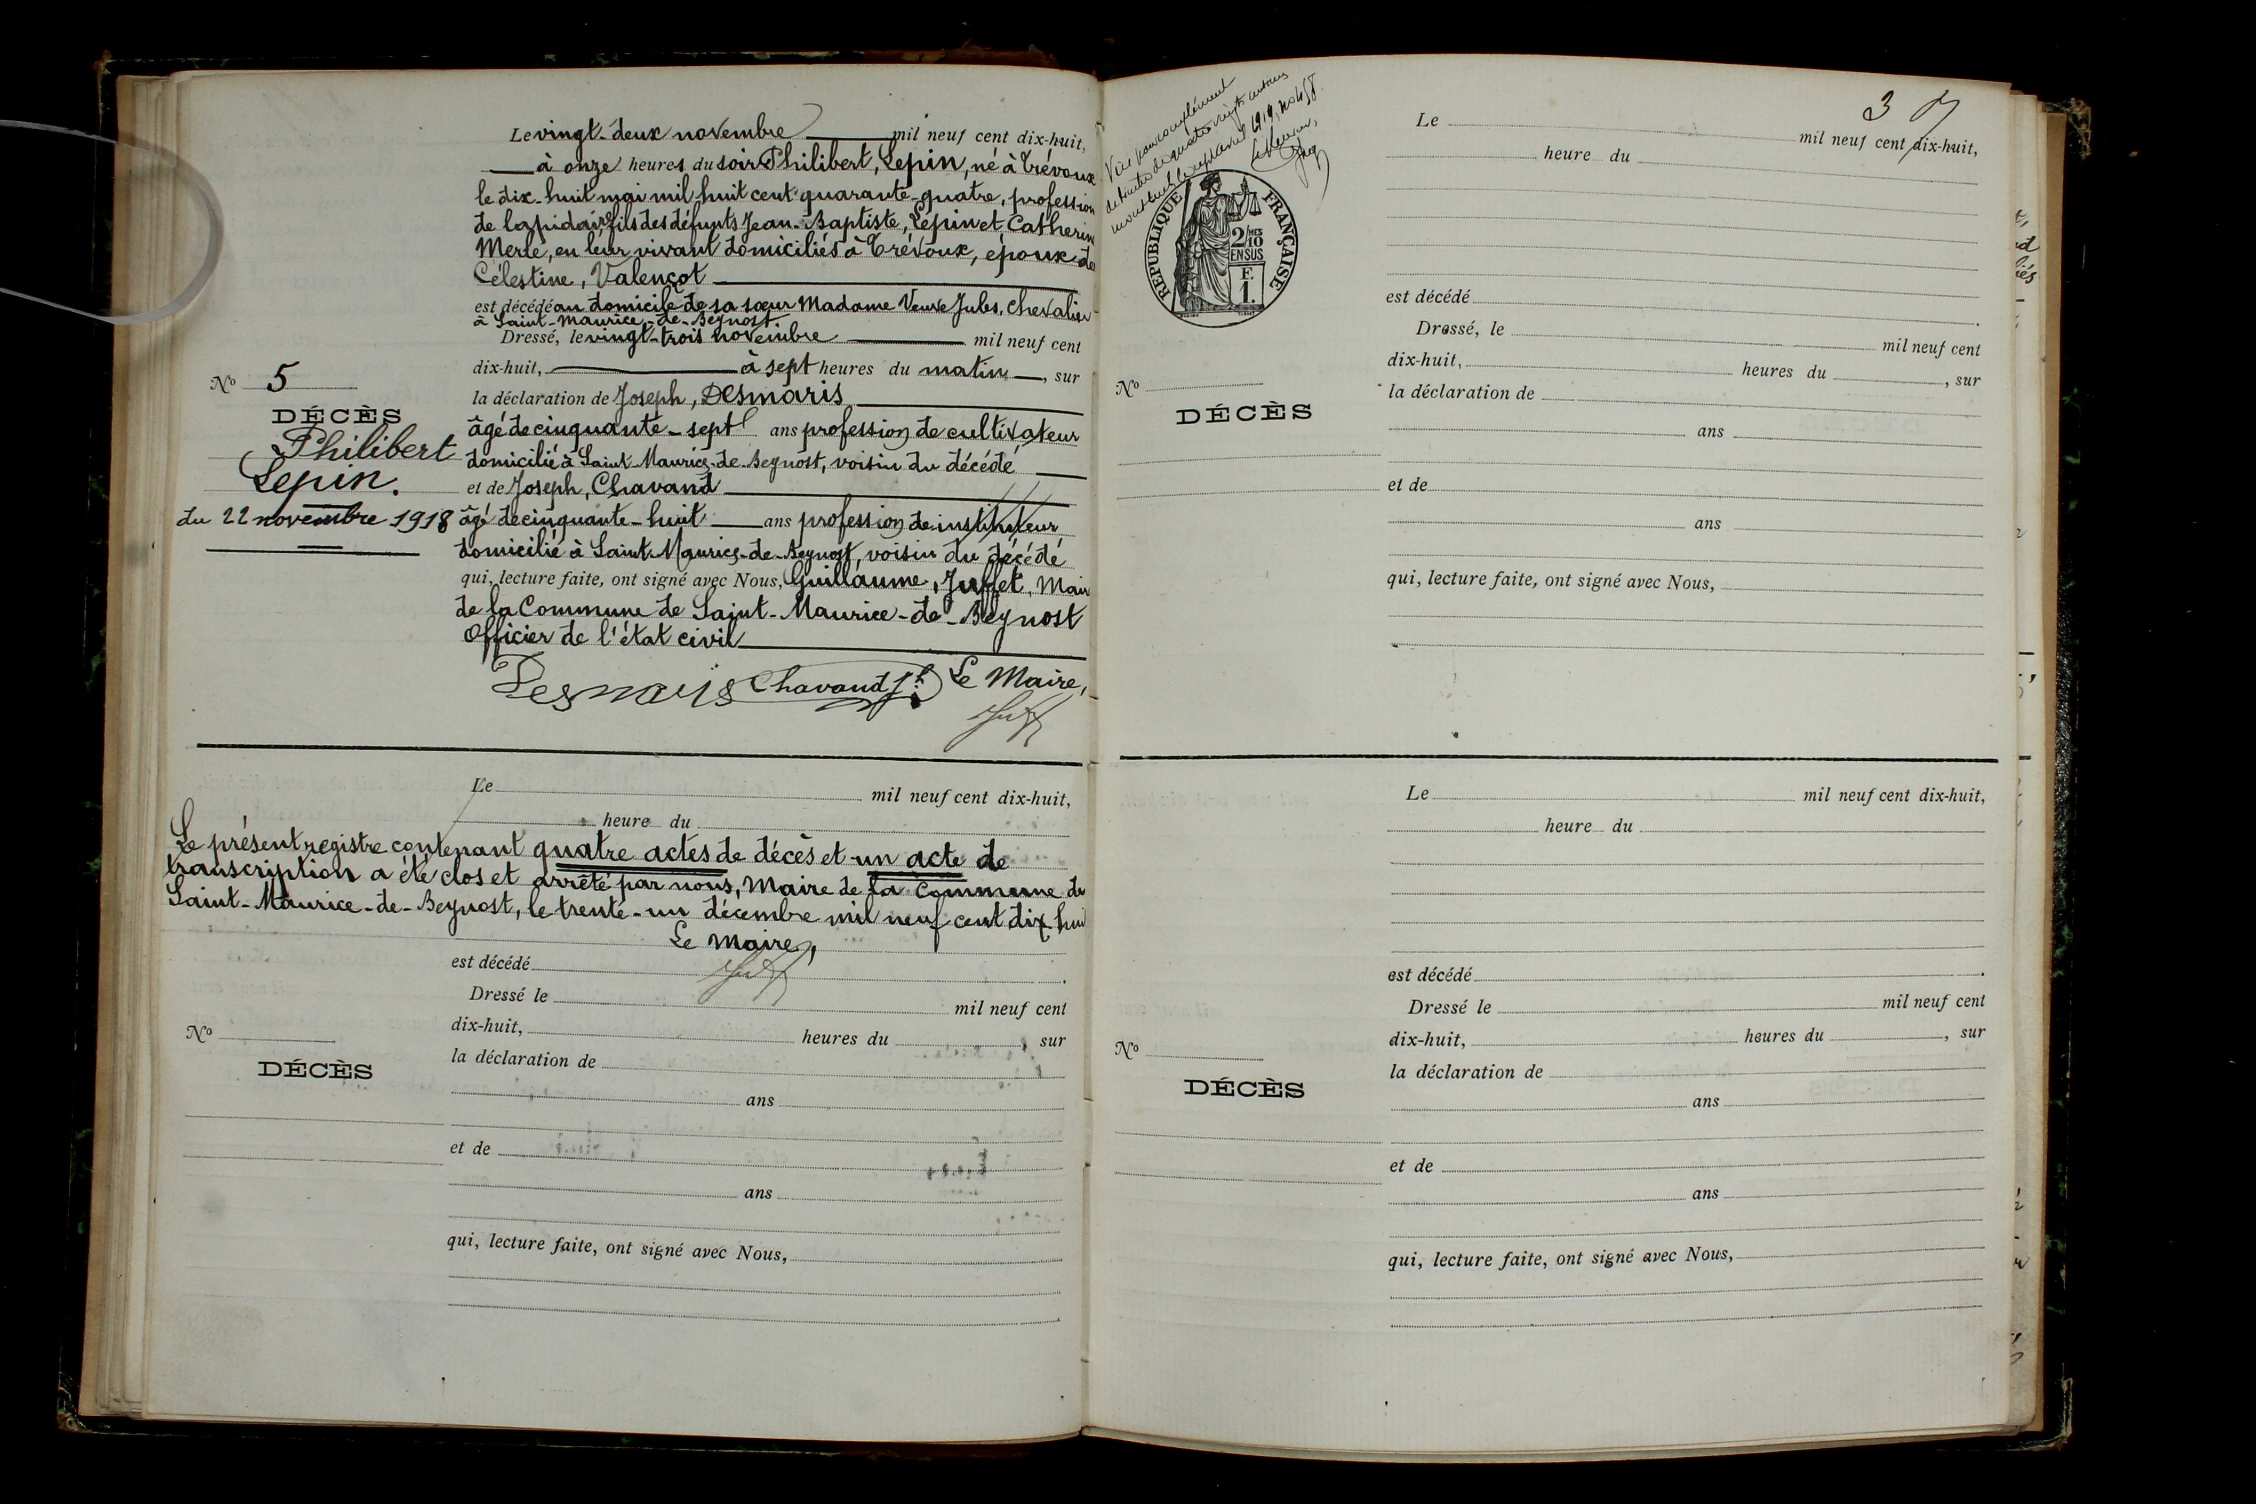 Le vingt-deux novembre mil neuf cent dix-huit,
à onze heures du soir Philibert, Lepin, né à Trévoux
le dix-huit mai mil huit cent quarante-quatre, profession
de lapidaire fils des défunts Jean-Baptiste, Lepin et Catherine
Merle, en leur vivant domiciliés à Trévoux, époux de
Célestine, Valençot
est décédé au domicile de sa sœur Madame Veuve Jules, Chevalier
à Saint-Maurice-de-Beynost
Dressé, le vingt-trois novembre mil neuf cent
dix-huit, à sept heures du matin, sur
la déclaration de Joseph, Desmaris
âgé de cinquante-sept ans profession de cultivateur
domicilié à Saint-Maurice-de-Beynost, voisin du décédé
et de Joseph, Chavand
âgé de cinquante-huit ans profession de instituteur
domicilié à Saint-Maurice-de-Beynost, voisin du décédé
qui, lecture faite, ont signé avec Nous, Guillaume, Juffet, Maire
de la Commune de Saint-Maurice-de-Beynost
Officier de l'état civil
Desmaris Chavand Jh Le Maire,
No 5
DÉCÈS
Philibert
Lepin.
du 22 novembre 1918
Le mil neuf cent dix-huit,
heure du
Le présent registre contenant quatre actes de décès et un acte de
transcription a été clos et arrêté par nous, Maire de la Commune de
Saint-Maurice-de-Beynost, le trente-un décembre mil neuf cent dix huit
Le Maire,
est décédé
Dressé le mil neuf cent
dix-huit, heures du , sur
la déclaration de
ans
et de
ans
qui, lecture faite, ont signé avec Nous,
No
DÉCÈS
3
RÉPUBLIQUE FRANÇAISE
2/10
EN SUS
F.
1.
Le mil neuf cent dix-huit,
heure du
est décédé
Dressé, le mil neuf cent
dix-huit, heures du , sur
la déclaration de
ans
et de
ans
qui, lecture faite, ont signé avec Nous,
No
DÉCÈS
Le mil neuf cent dix-huit,
heure du
est décédé
Dressé le mil neuf cent
dix-huit, heures du , sur
la déclaration de
ans
et de
ans
qui, lecture faite, ont signé avec Nous,
No
DÉCÈS